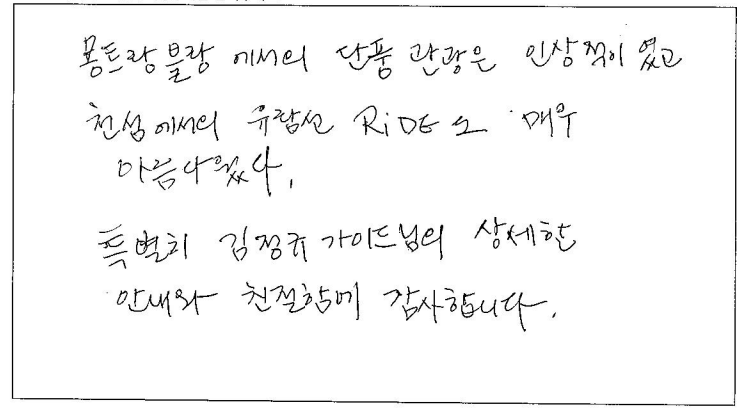 몽트랑블랑 에서의 단풍 관광은 인상적이 였고
천섬에서의 유람선 RiDE 도 매우
아름다웠다.
특별히 김정규 가이드님의 상세한
안내와 친절함에 감사합니다.